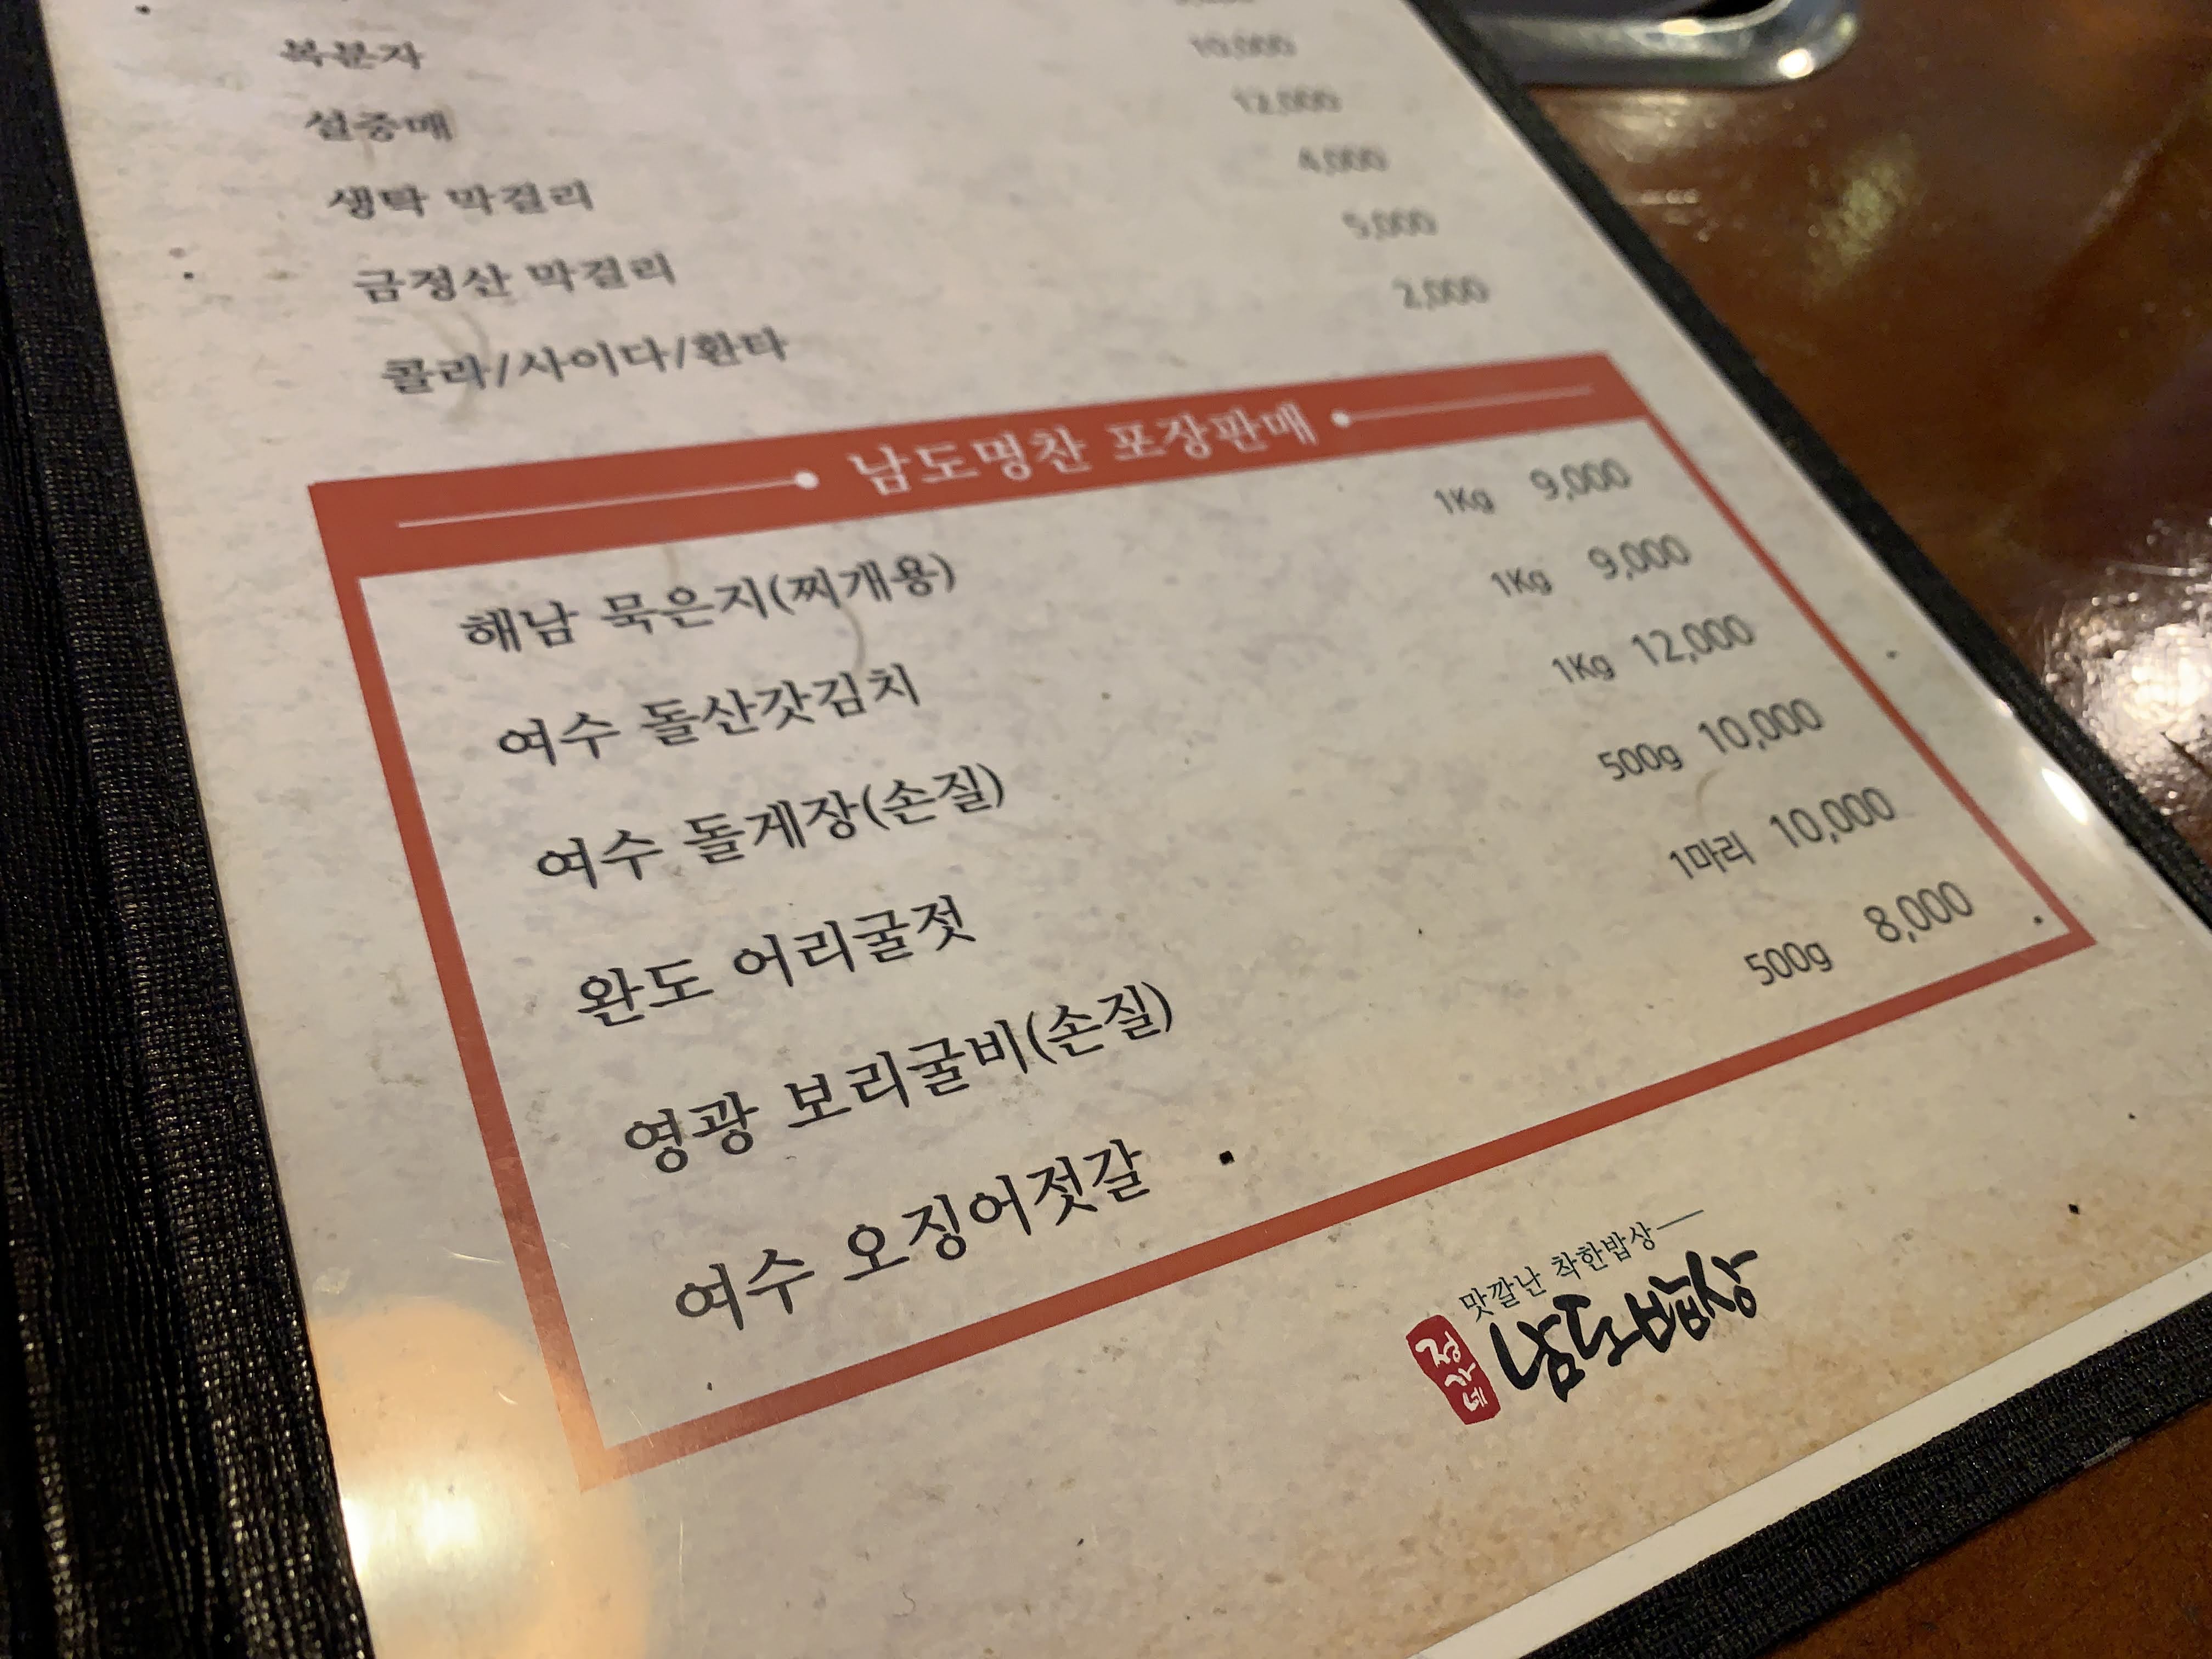 복분자 10,000
설중매 12,000
생탁 막걸리 4,000
금정산 막걸리 5,000
콜라/사이다/환타 2,000
남도명찬 포장판매
해남 묵은지(찌개용) 1Kg 9,000
여수 돌산갓김치 1Kg 9,000
여수 돌게장(손질) 1Kg 12,000
완도 어리굴젓 500g 10,000
영광 보리굴비(손질) 1마리 10,000
여수 오징어젓갈 500g 8,000
맛깔난 착한밥상
남도밥상